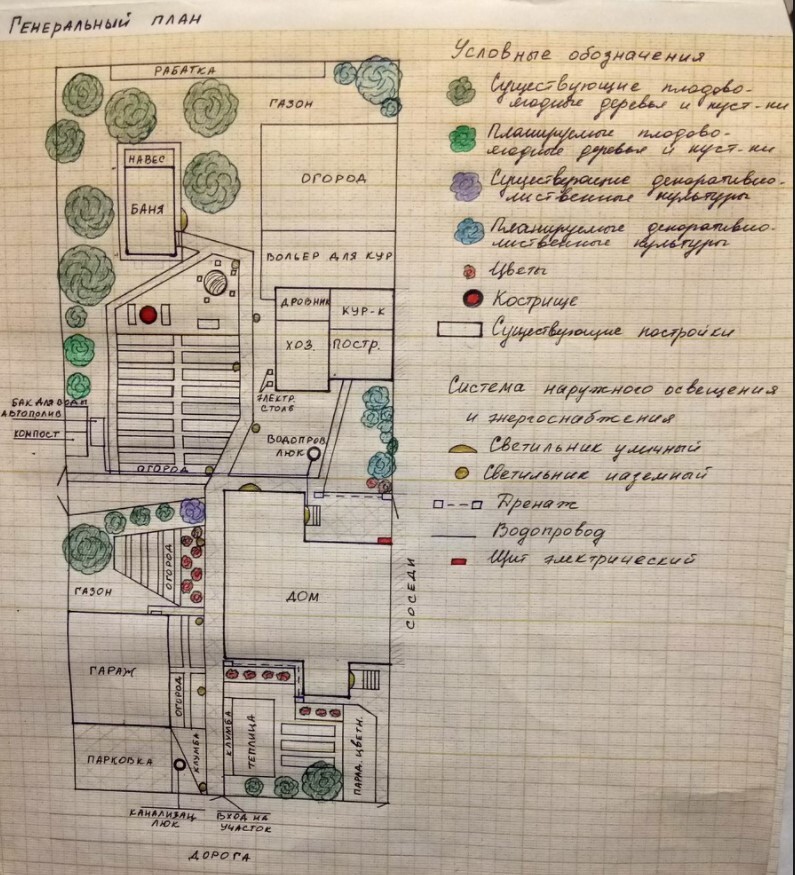 Генеральный план
Рабатка
Газон
Навес
Баня
Огород
Вольер для кур
Дровник
Кур-к
Хоз. постр.
Электр.
столб
Водопров
люк
Бак для воды
автополив
компост
Огород
Огород
Газон
Дом
Соседи
Гараж
Огород
Клумба
Теплица
Парад. цветн.
Парковка
Клумба
Канализац
люк
Вход на
участок
Дорога
Условные обозначения
Существующие плодово-
ягодные деревья и куст-ки
Планируемые плодово-
ягодные деревья и куст-ки
Существующие декоративно-
лиственные культуры
Планируемые декоративно-
лиственные культуры
Цветы
Кострище
Существующие постройки
Система наружного освещения
и энергоснабжения
Светильник уличный
Светильник наземный
Дренаж
Водопровод
Щит электрический